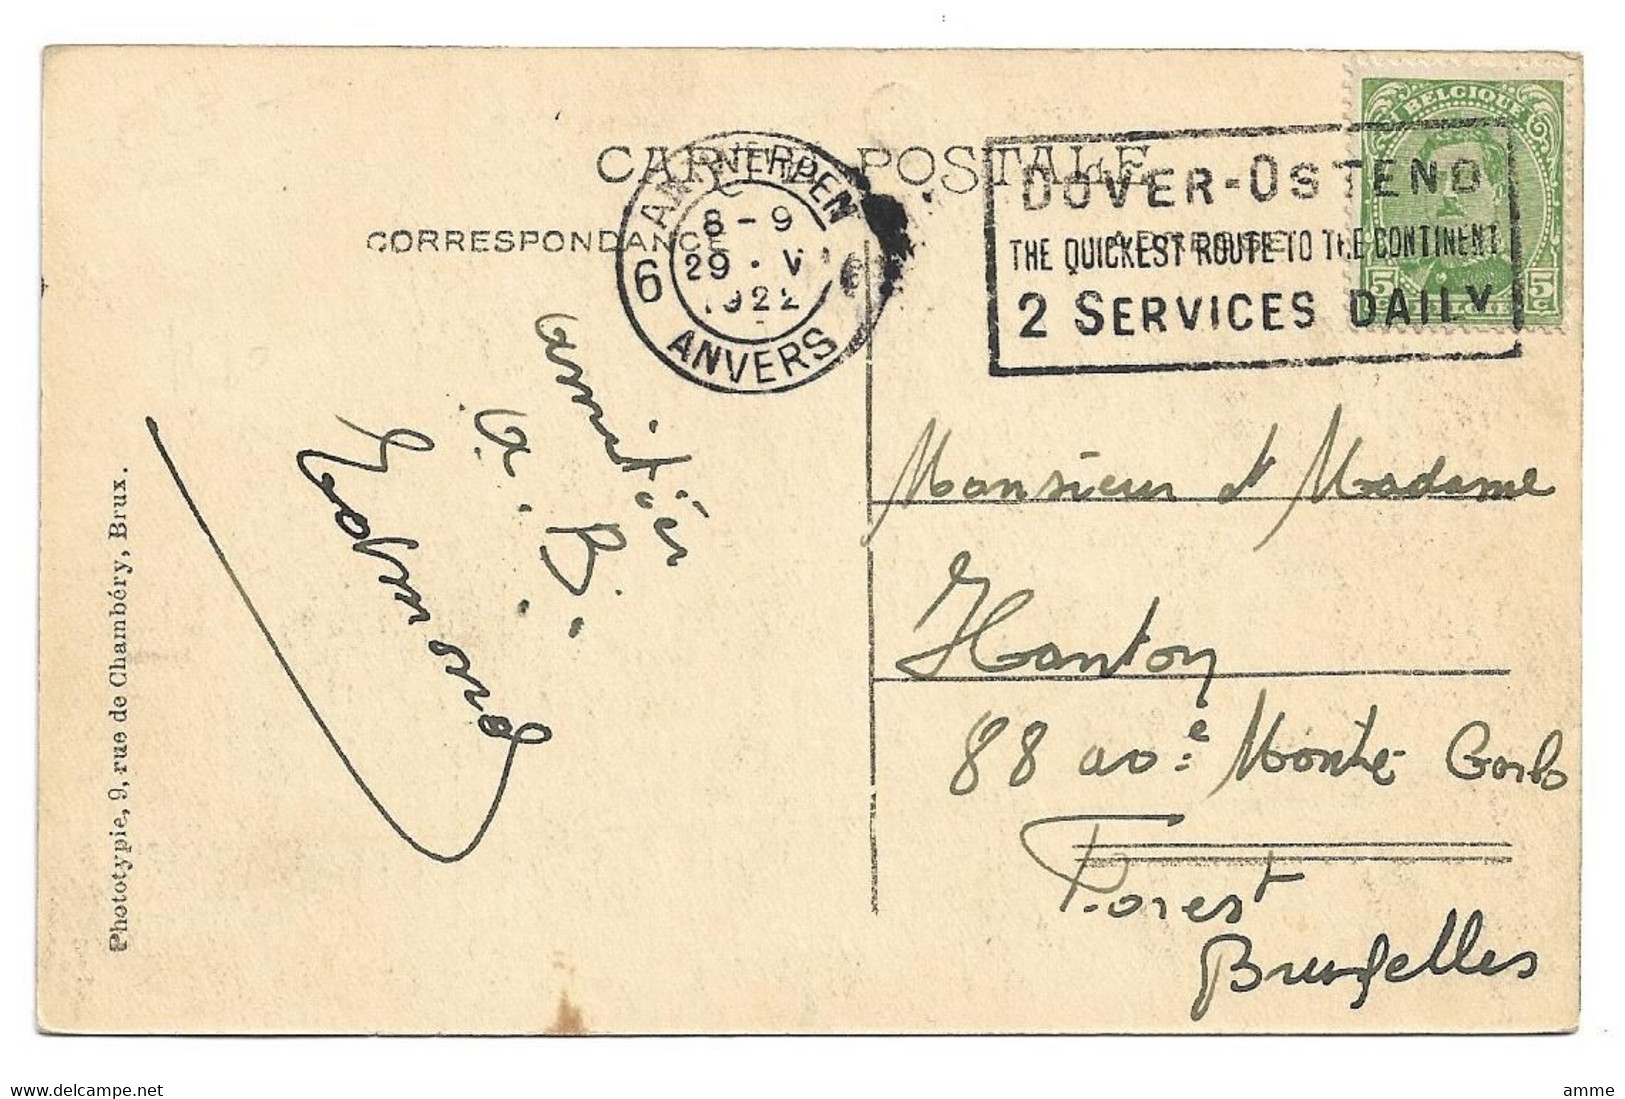 CARTE POSTALE
CORRESPONDANCE
ADRESSE
ANTWERPEN
8-9
29 · V
1922
6 6
ANVERS
DOVER-OSTEND
THE QUICKEST ROUTE TO THE CONTINENT
2 SERVICES DAILY
BELGIQUE
5c 5c
BELGIË
amitiés
a. B.
Edmond
Monsieur & Madame
Hanton
88 ave Monte Carlo
Forest
Bruxelles
Phototypie, 9, rue de Chambéry, Brux.
delcampe.net
amme